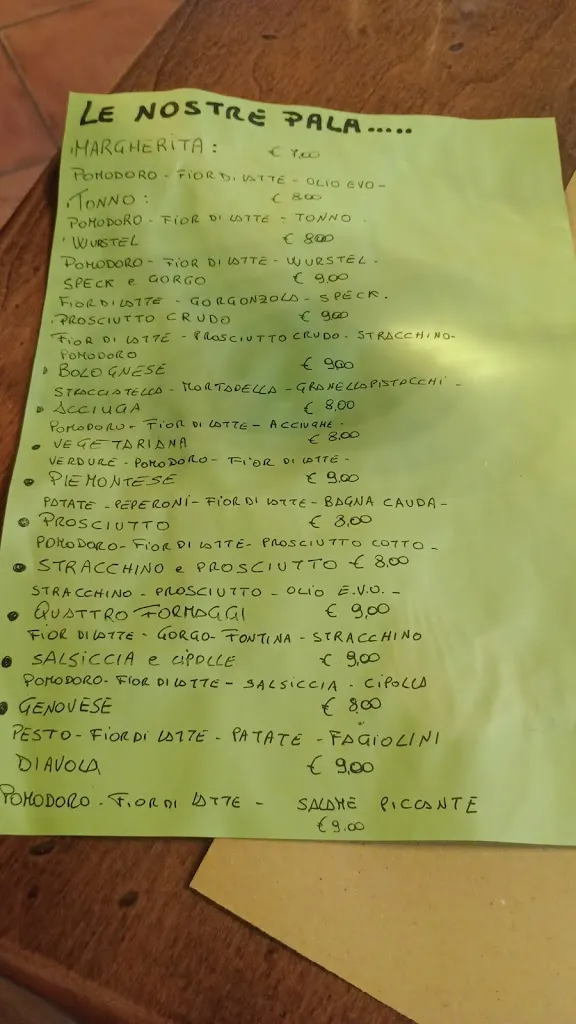 LE NOSTRE PALA.....
MARGHERITA: € 7,00
POMODORO - FIOR DI LATTE - OLIO EVO -
TONNO: € 8,00
POMODORO - FIOR DI LATTE - TONNO.
WURSTEL € 8,00
POMODORO - FIOR DI LATTE - WURSTEL.
SPECK e GORGO € 9,00
FIOR DI LATTE - GORGONZOLA - SPECK.
PROSCIUTTO CRUDO € 9,00
FIOR DI LATTE - PROSCIUTTO CRUDO - STRACCHINO -
POMODORO
BOLOGNESE € 9,00
STRACCIATELLA - MORTADELLA - GRANELLO PISTACCHI -
ACCIUGA € 8,00
POMODORO - FIOR DI LATTE - ACCIUGHE.
VEGETARIANA € 8,00
VERDURE - POMODORO - FIOR DI LATTE -
PIEMONTESE € 9,00
PATATE - PEPERONI - FIOR DI LATTE - BAGNA CAUDA -
PROSCIUTTO € 8,00
POMODORO - FIOR DI LATTE - PROSCIUTTO COTTO -
STRACCHINO e PROSCIUTTO € 8,00
STRACCHINO - PROSCIUTTO - OLIO E.V.O. -
QUATTRO FORMAGGI € 9,00
FIOR DI LATTE - GORGO - FONTINA - STRACCHINO
SALSICCIA e CIPOLLE € 9,00
POMODORO - FIOR DI LATTE - SALSICCIA - CIPOLLA
GENOVESE € 8,00
PESTO - FIOR DI LATTE - PATATE - FAGIOLINI
DIAVOLA € 9,00
POMODORO - FIOR DI LATTE - SALAME PICCANTE
€ 9,00